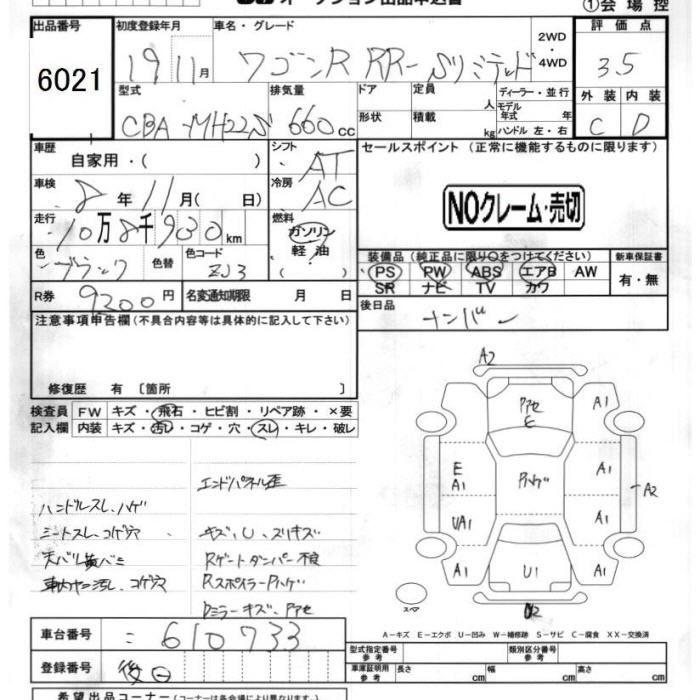 オークション出品申込書
①会場控
出品番号
6021
初度登録年月
19 11月
車名・グレード
ワゴンR RR-Sリミテッド
2WD
・4WD
評価点
3.5
型式
CBA-MH22S
排気量
660cc
ドア
定員
人
形状
積載
kg
ディーラー・並行
モデル年式
年
ハンドル 左・右
外装
内装
C
D
車歴
自家用・( )
シフト
AT
セールスポイント(正常に機能するものに限ります)
NOクレーム・売切
車検
8年 11月( 日)
冷房
AC
走行
10万8千930km
燃料
ガソリン
軽油
( )
色
ブラック
色替
色コード
ZJ3
装備品(純正品に限り○をつけてください)
新車保証書
PS
PW
ABS
エアB
AW
有・無
SR
ナビ
TV
カワ
R券
9200円
名変通知期限
月 日
後日品
ナンバー
注意事項申告欄(不具合内容等は具体的に記入して下さい)
修復歴 有〔箇所 〕
検査員
記入欄
FW
キズ・飛石・ヒビ割・リペア跡・×要
内装
キズ・汚レ・コゲ・穴・スレ・キレ・破レ
エンドパネル歪
ハンドルスレ、ハゲ
シートスレ、コゲ穴
キズ、U、スリキズ
Rゲートダンパー不良
車内ヤニ汚レ、コゲ穴
RスポイラーPハゲ
Dミラーキズ、Pアセ
A2
Pアセ
E
A1
E
A1
Pハゲ
A1
A2
UA1
A1
A1
U1
A1
スペア
A-キズ E-エクボ U-凹み W-補修跡 S-サビ C-腐食 XX-交換済
車台番号
610733
登録番号
後日
型式指定番号
参考
類別区分番号
参考
車庫証明用
参考
長さ
cm
幅
cm
高さ
cm
希望出品コーナー(コーナーは各会場により異なります)